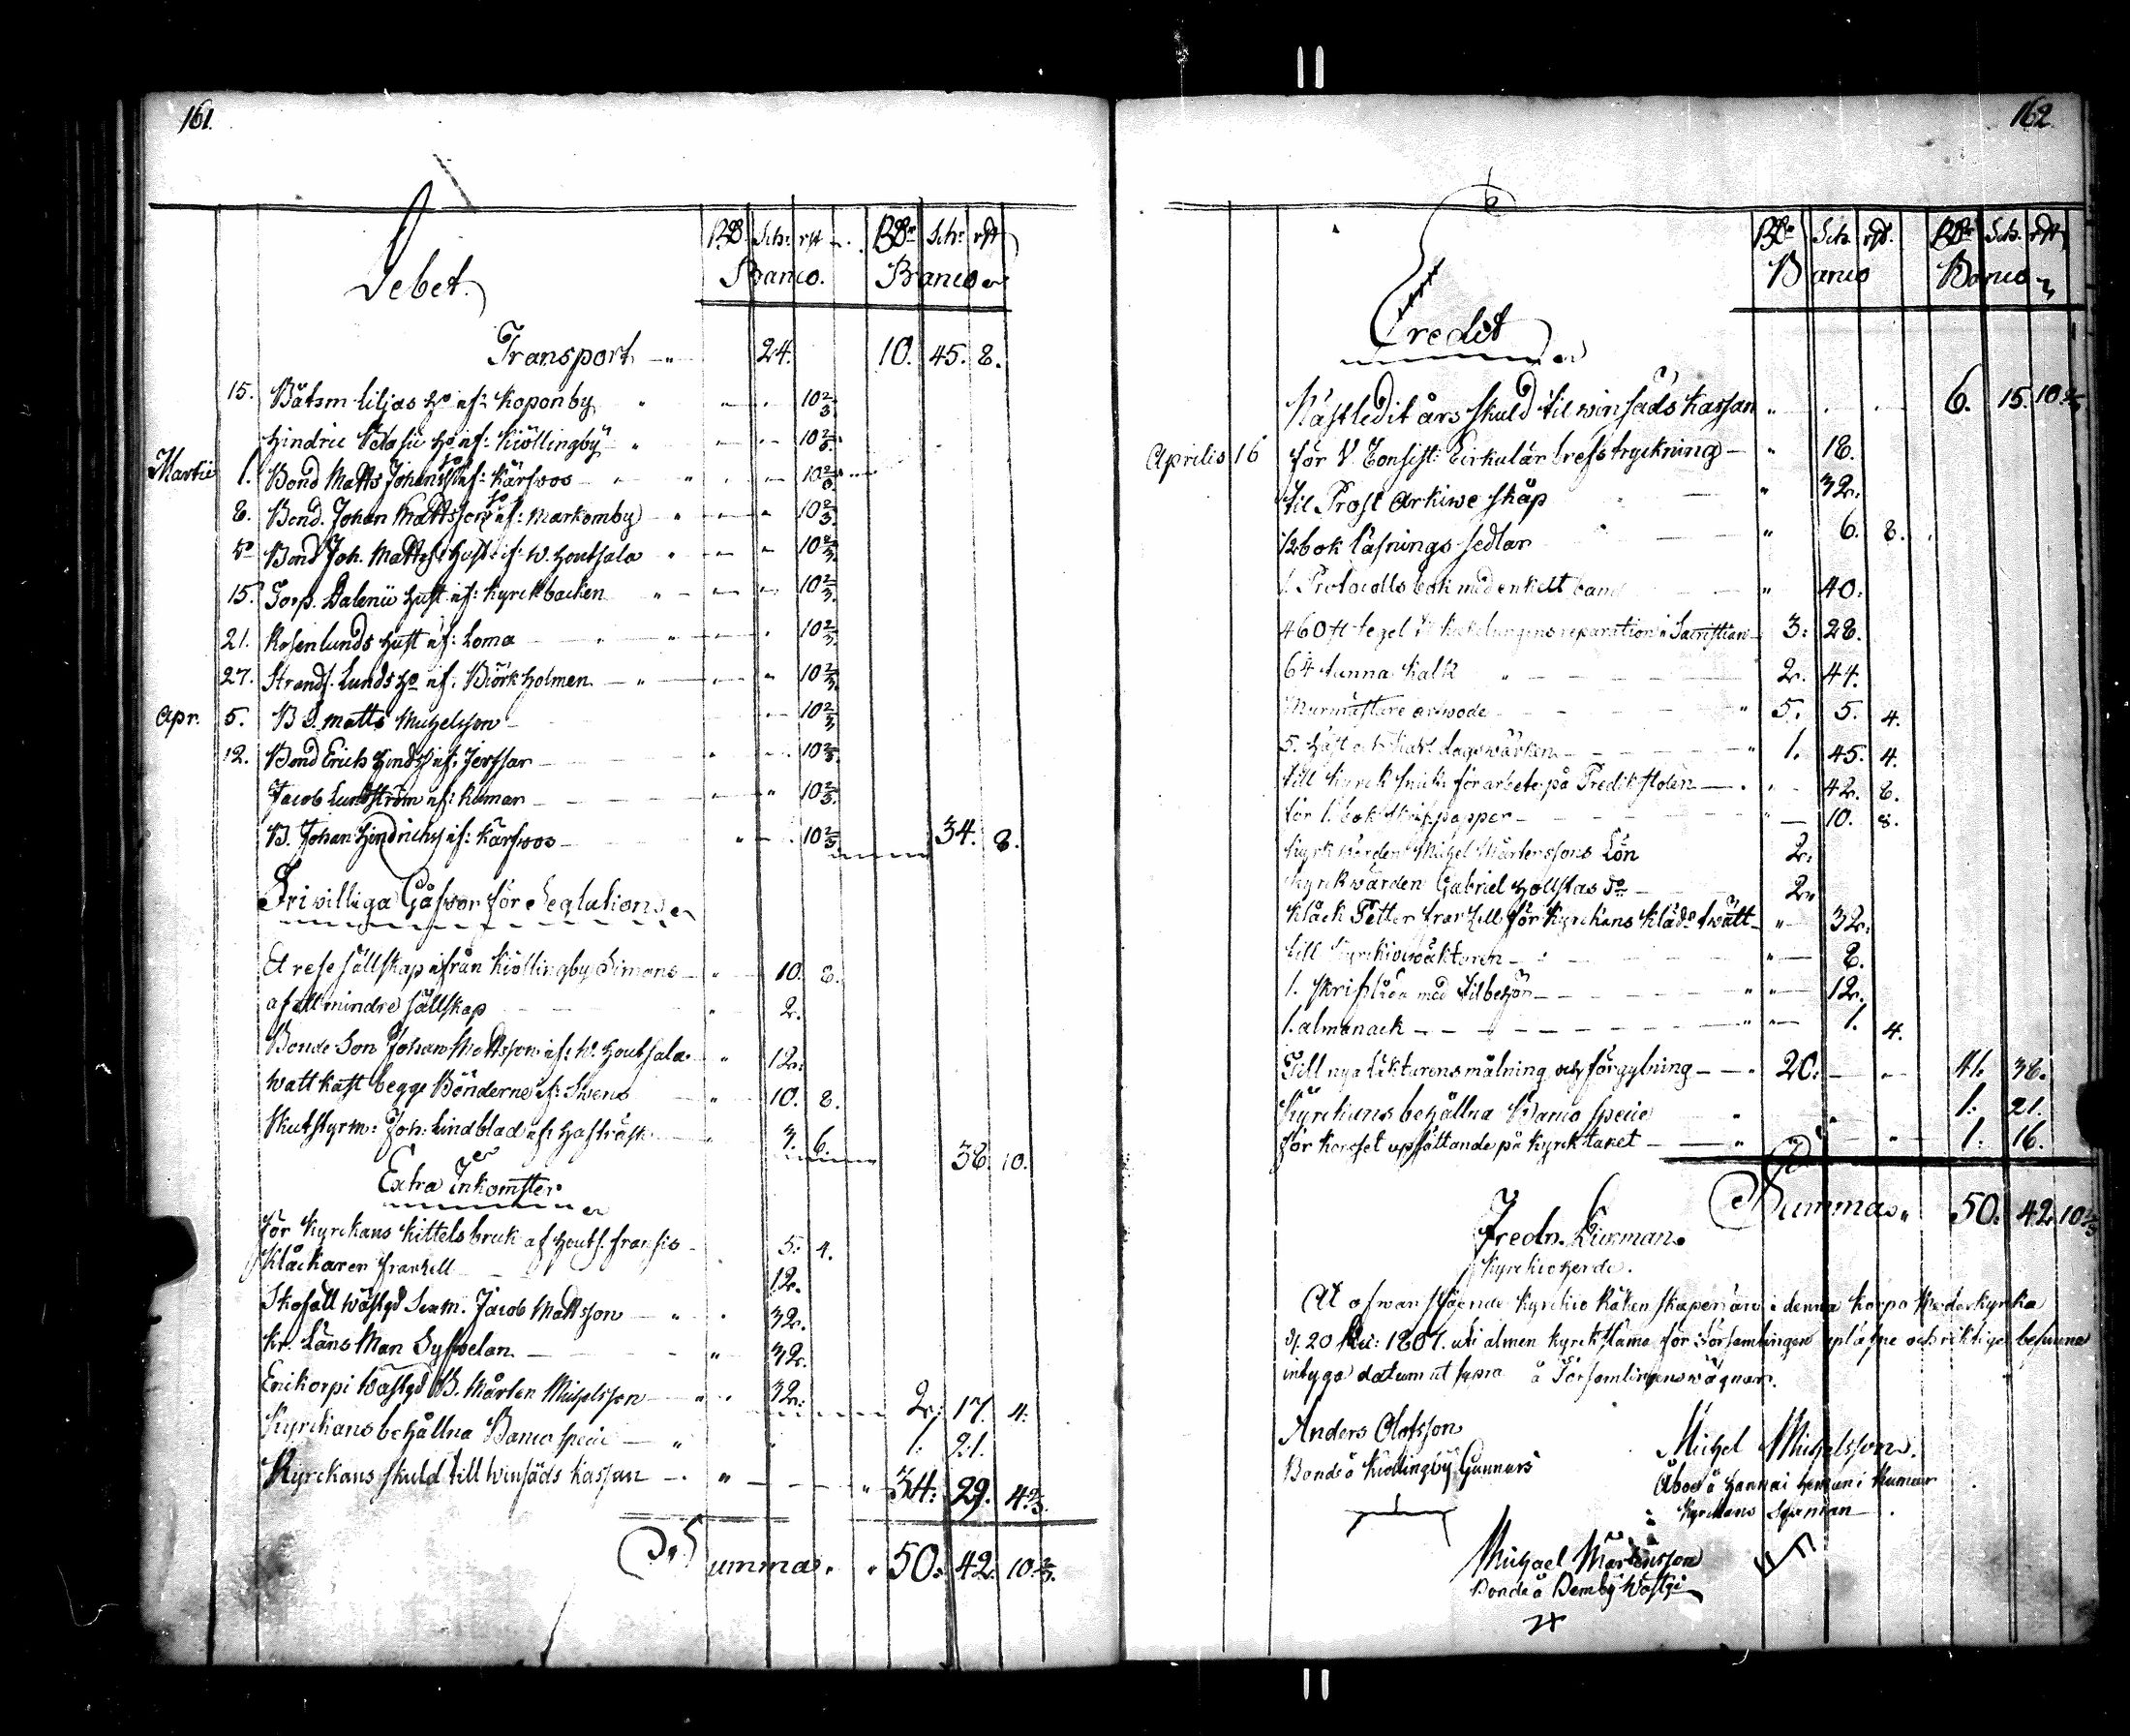 161.
Debet.
Rd. Sch: rst Rd. Sch: rst
Banco. Banco
Transport 24. 10. 45. 8.
15. Båtsm Liljas ho if: Koponby 10 2/3
Hindric ho if: Kiöllingby 10 2/3.
Martii 1. Bond Matts Johanss ho if: Kärfvos 10 2/3
8. Bond. Johan Mattsson ho if: Markomby 10 2/3.
do Bond Joh. Mattss Hust. if: W. Houtsala 10 2/3.
15. Torp. Dalenii Hust if: Kyrckbacken 10 2/3.
21. Rosenlunds Hust if: Loma 10 2/3.
27. Strands. Lunds ho if: Biörkholmen 10 2/3.
Apr. 5. B. S. Matts Michelsson 10 2/3
12. Bond Erich Hinds if: Jerssar 10 2/3.
Jacob Lundström if: Kumar 10 2/3.
B. Johan Hindrichs if: Kärfvos 10 2/3 34. 8.
Frivilliga Gåfvor för
Et resesällskap ifrån Kiöllingby Simons 10. 8.
af ett mindre sällskap 2.
Bonde Son Johan Mattsson if: W. Houtsala 12.
Wattkast begge Bönderne if: Swens 10. 8.
Skutstyrm: Joh: Lindblad if: 3. 6. 38. 10.
Extra Inkomster
för Kyrckans Kittels bruk af Houts. 5. 4.
Klåckaren Franzell 12.
Skofall Wästgd Sexm. Jacob Mattsson 32.
Kr. Läns Man Sylvelan 32.
Erickorpi Wästgd B. Mårten Michelsson 32. 2. 17. 4.
Kyrckans behållna Banco specie 1. 21.
Kyrckans skuld till winsäds Kassan 34. 29. 4 2/3.
Summa 50. 42. 10 2/3.
162
Rd. Sch. rst. Rd. Sch. rst
Banco Banco
Credit
Nästledit års skuld til winsäds Kassan 6. 15. 10 2/3
Aprilis 16 för V. Consist: Cirkulär brefs tryckning 18.
til Prost Arkiwe skåp 32.
12 bok läsnings sedlar 6. 8.
1. Protocolls bok med enkelt band 40.
460 st tegel til Kakelungens reparation i Sacristian 3. 28.
6 1/4 tunna Kalk 2. 44.
Murmästare arwode 5. 5. 4.
5. häst och karl dagswärken 1. 45. 4.
till Kyrck snick: för arbete på Predikstolen 42. 8.
för 1. bok skrifpapper 10. 8.
Kyrkwärden Michel Mårtenssons Lön 2.
Kyrckwärden Gabriel Hollstas do 2.
Klåck Petter Franzell för Kyrckans Kläd. twätt 32.
till Kyrckiowäktaren 8.
1. skriflåda med tilbehör 12.
1. almanack 1. 4.
Till nya läkturens målning och förgylning 20. 41. 38.
Kyrckans behållna Banco specie 1. 21.
för Korsset upsättande på Kyrcktaket 1. 16.
Summa 50. 42. 10 2/3
Fredr.
Kyrckioherde.
At ofwanstående Kyrckio Räkenskaper äro i denna Korpo Moderkyrka
d. 20 1807. uti almen Kyrckstäma för Församlingen upläsne och riktiga befunne
intyga datum ut supra å Församlingens wägnar.
Anders Olofsson
Bonde å Kiöllingby Gunnars
Michel Michelsson
Åboe å Hannai Heman i Kumar
Kyrckans Sexman
Michael Mårtensson
Bonde å Bemby Wästgd